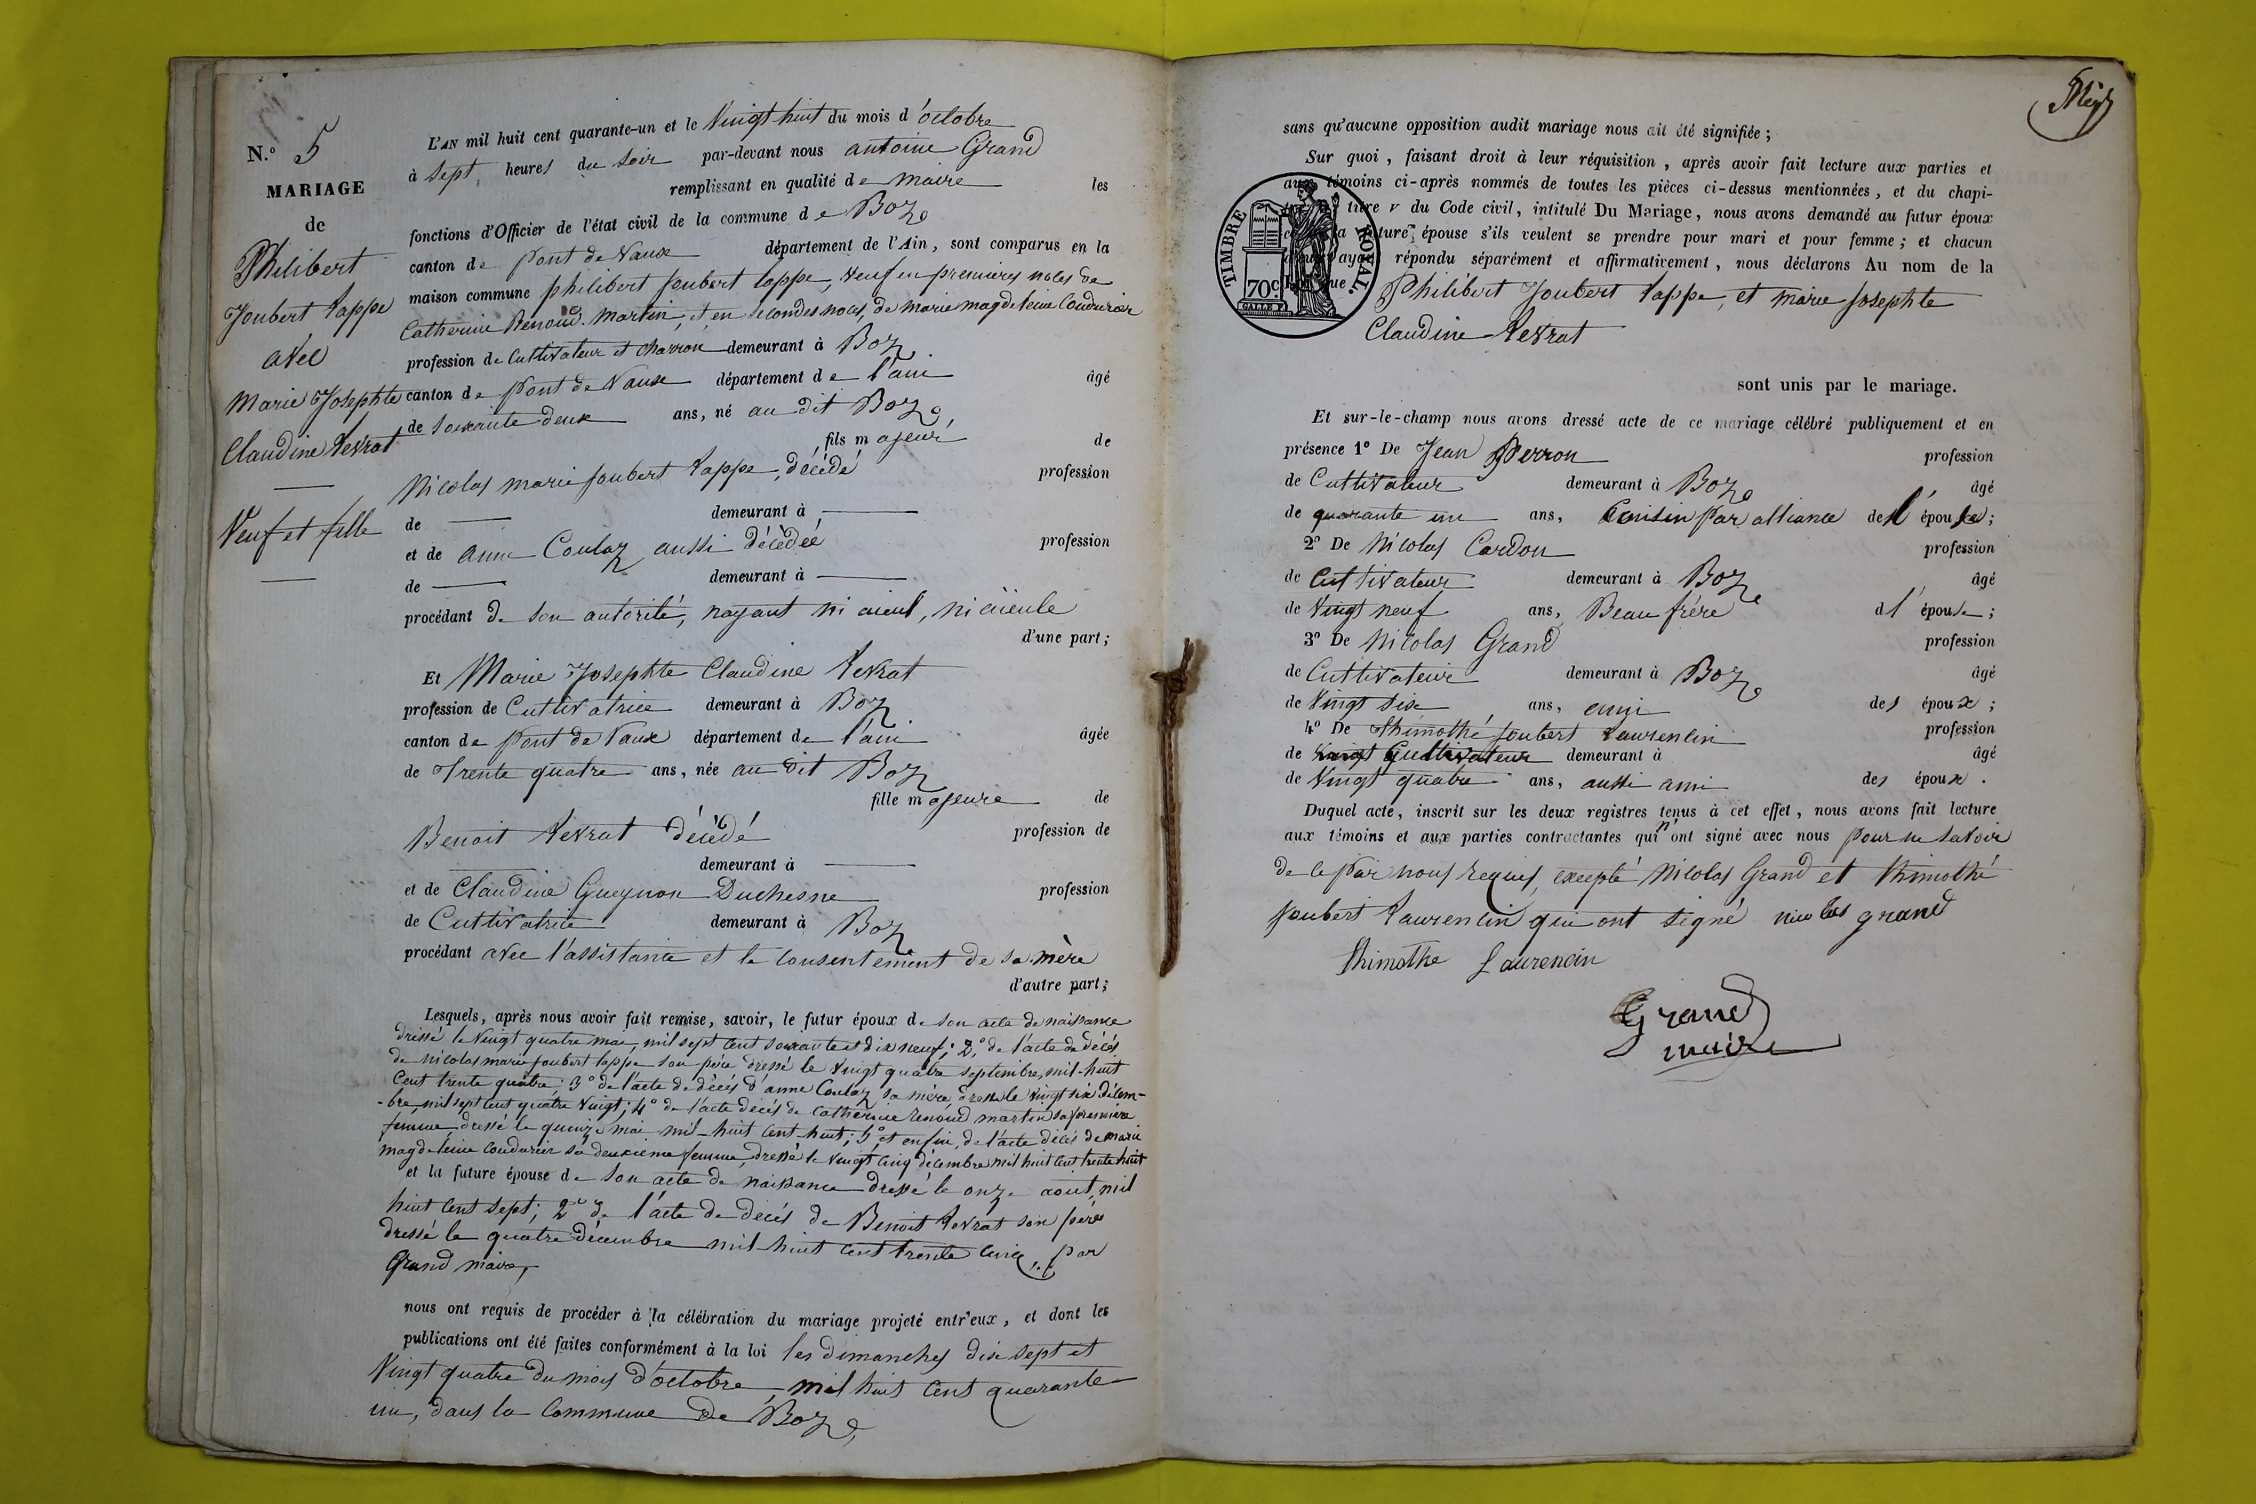 N.º 5
MARIAGE
de
Philibert
Joubert Lappe
avec
Marie Josephte
Claudine Levrat
Veuf et fille
L'AN mil huit cent quarante-un et le Vingt huit du mois d'octobre
à sept heures du soir par-devant nous antoine Grand
remplissant en qualité de maire les
fonctions d'Officier de l'état civil de la commune de Boz
canton de Pont de Vaux département de l'Ain, sont comparus en la
maison commune philibert Joubert Lappe, veuf en premieres noces de
Catherine Renoud Martin, et en secondes noces, de marie magdeleine Coudurier
profession de Cultivateur et charron demeurant à Boz
canton de pont de Vaux département de l'ain âgé
de soixante deux ans, né au dit Boz
fils majeur de
Nicolas marie Joubert Lappe, décédé profession
de demeurant à
et de anne Coulaz aussi décédée profession
de demeurant à
procédant de son autorité, nayant ni aieul, ni aïeule
d'une part;
Et Marie Josephte Claudine Levrat
profession de Cultivatrice demeurant à Boz
canton de Pont de Vaux département de l'ain âgée
de Trente quatre ans, née au dit Boz
fille majeure de
Benoit Levrat décédé profession de
demeurant à
et de Claudine Gueynon Duchesne profession
de Cultivatrice demeurant à Boz
procédant avec l'assistance et le consentement de sa mère
d'autre part;
Lesquels, après nous avoir fait remise, savoir, le futur époux de son acte de naissance
dressé le Vingt quatre mai, mil sept cent soixante et dix neuf; 2.º de l'acte de décés
de nicolas marie Joubert Lappe son père dressé le vingt quatre septembre, mil-huit
Cent trente quatre; 3º de l'acte de décés d'anne Coulaz sa mère dressé le vingt six décem-
-bre, mil sept cent quatre vingt; 4º de l'acte décés de Catherine renoud martin sa premiere
femme dressé le quinze mai mil-huit cent-huit; 5º et enfin, de l'acte décés de marie
magdeleine coudurier sa deuxieme femme, dressé le vingt cinq décembre mil huit cent trente huit
et la future épouse de son acte de naissance dressé le onze aout, mil
huit cent sept; 2º de l'acte de décés de Benoit Levrat son père
dressé le quatre décembre mil huit cent trente cinq, par
Grand maire,
nous ont requis de procéder à la célébration du mariage projeté entr'eux, et dont les
publications ont été faites conformément à la loi les dimanches dix sept et
Vingt quatre du mois d'octobre, mil huit cent quarante
un, dans la Commune de Boz,
sans qu'aucune opposition audit mariage nous ait été signifiée;
Sur quoi, faisant droit à leur réquisition, après avoir fait lecture aux parties et
aux témoins ci-après nommés de toutes les pièces ci-dessus mentionnées, et du chapi-
titre V du Code civil, intitulé Du Mariage, nous avons demandé au futur époux
et à la future épouse s'ils veulent se prendre pour mari et pour femme; et chacun
d'eux ayant répondu séparément et affirmativement, nous déclarons Au nom de la
Loi, que Philibert Joubert Lappe, et marie Josephte
Claudine Levrat
TIMBRE ROYAL.
70c.
sont unis par le mariage.
Et sur-le-champ nous avons dressé acte de ce mariage célébré publiquement et en
présence 1º De Jean Perron profession
de Cultivateur demeurant à Boz âgé
de quarante un ans, Cousin par alliance de l'épouse;
2º De Nicolas Cardon profession
de Cultivateur demeurant à Boz âgé
de Vingt neuf ans, Beau frère d l'épouse;
3º De Nicolas Grand profession
de Cultivateur demeurant à Boz âgé
de Vingt six ans, ami des époux;
4º De Thimothé Joubert Laurencin profession
de Cultivateur demeurant à âgé
de Vingt quatre ans, aussi ami des époux.
Duquel acte, inscrit sur les deux registres tenus à cet effet, nous avons fait lecture
aux témoins et aux parties contractantes qui n'ont signé avec nous pour ne savoir
de ce par nous requis, excepté Nicolas Grand et Thimothé
Joubert Laurencin qui ont signé nicolas grand
Thimothe Laurencin
Grand
maire